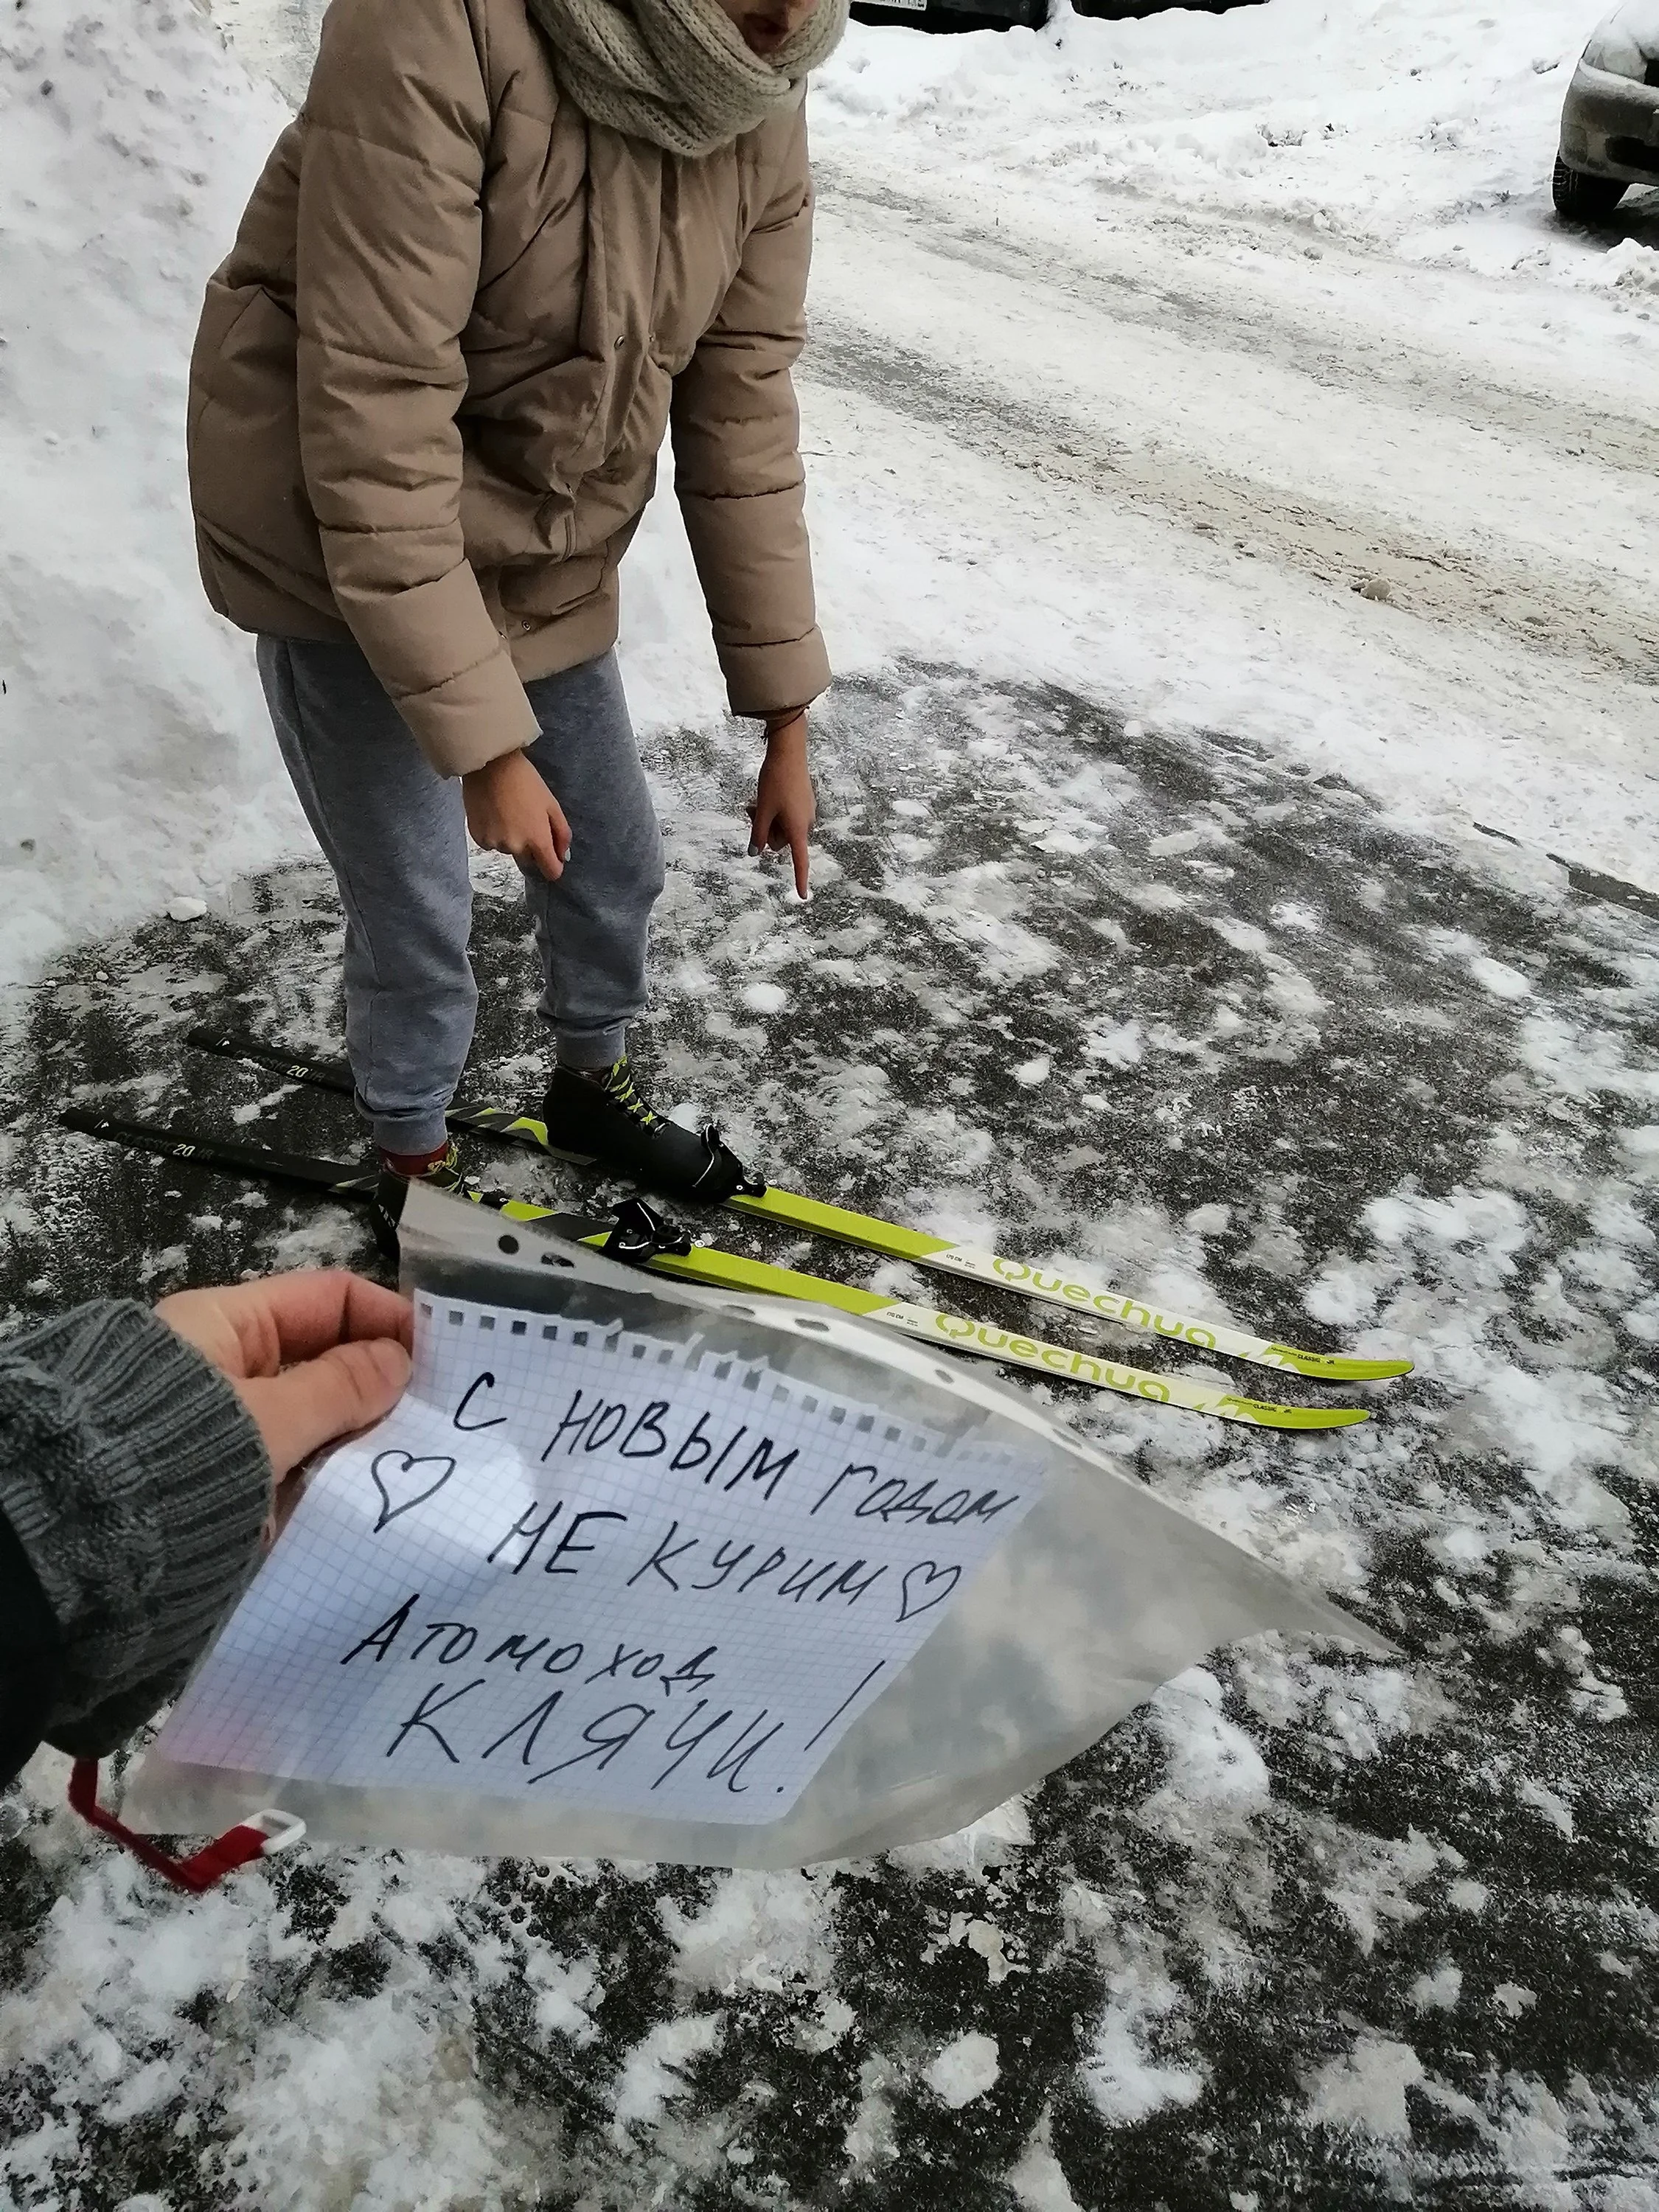 20
20
Quechua
CLASSIC
Quechua
CLASSIC
С НОВЫМ ГОДОМ
НЕ КУРИМ
Атомоход
КЛЯЧИ!